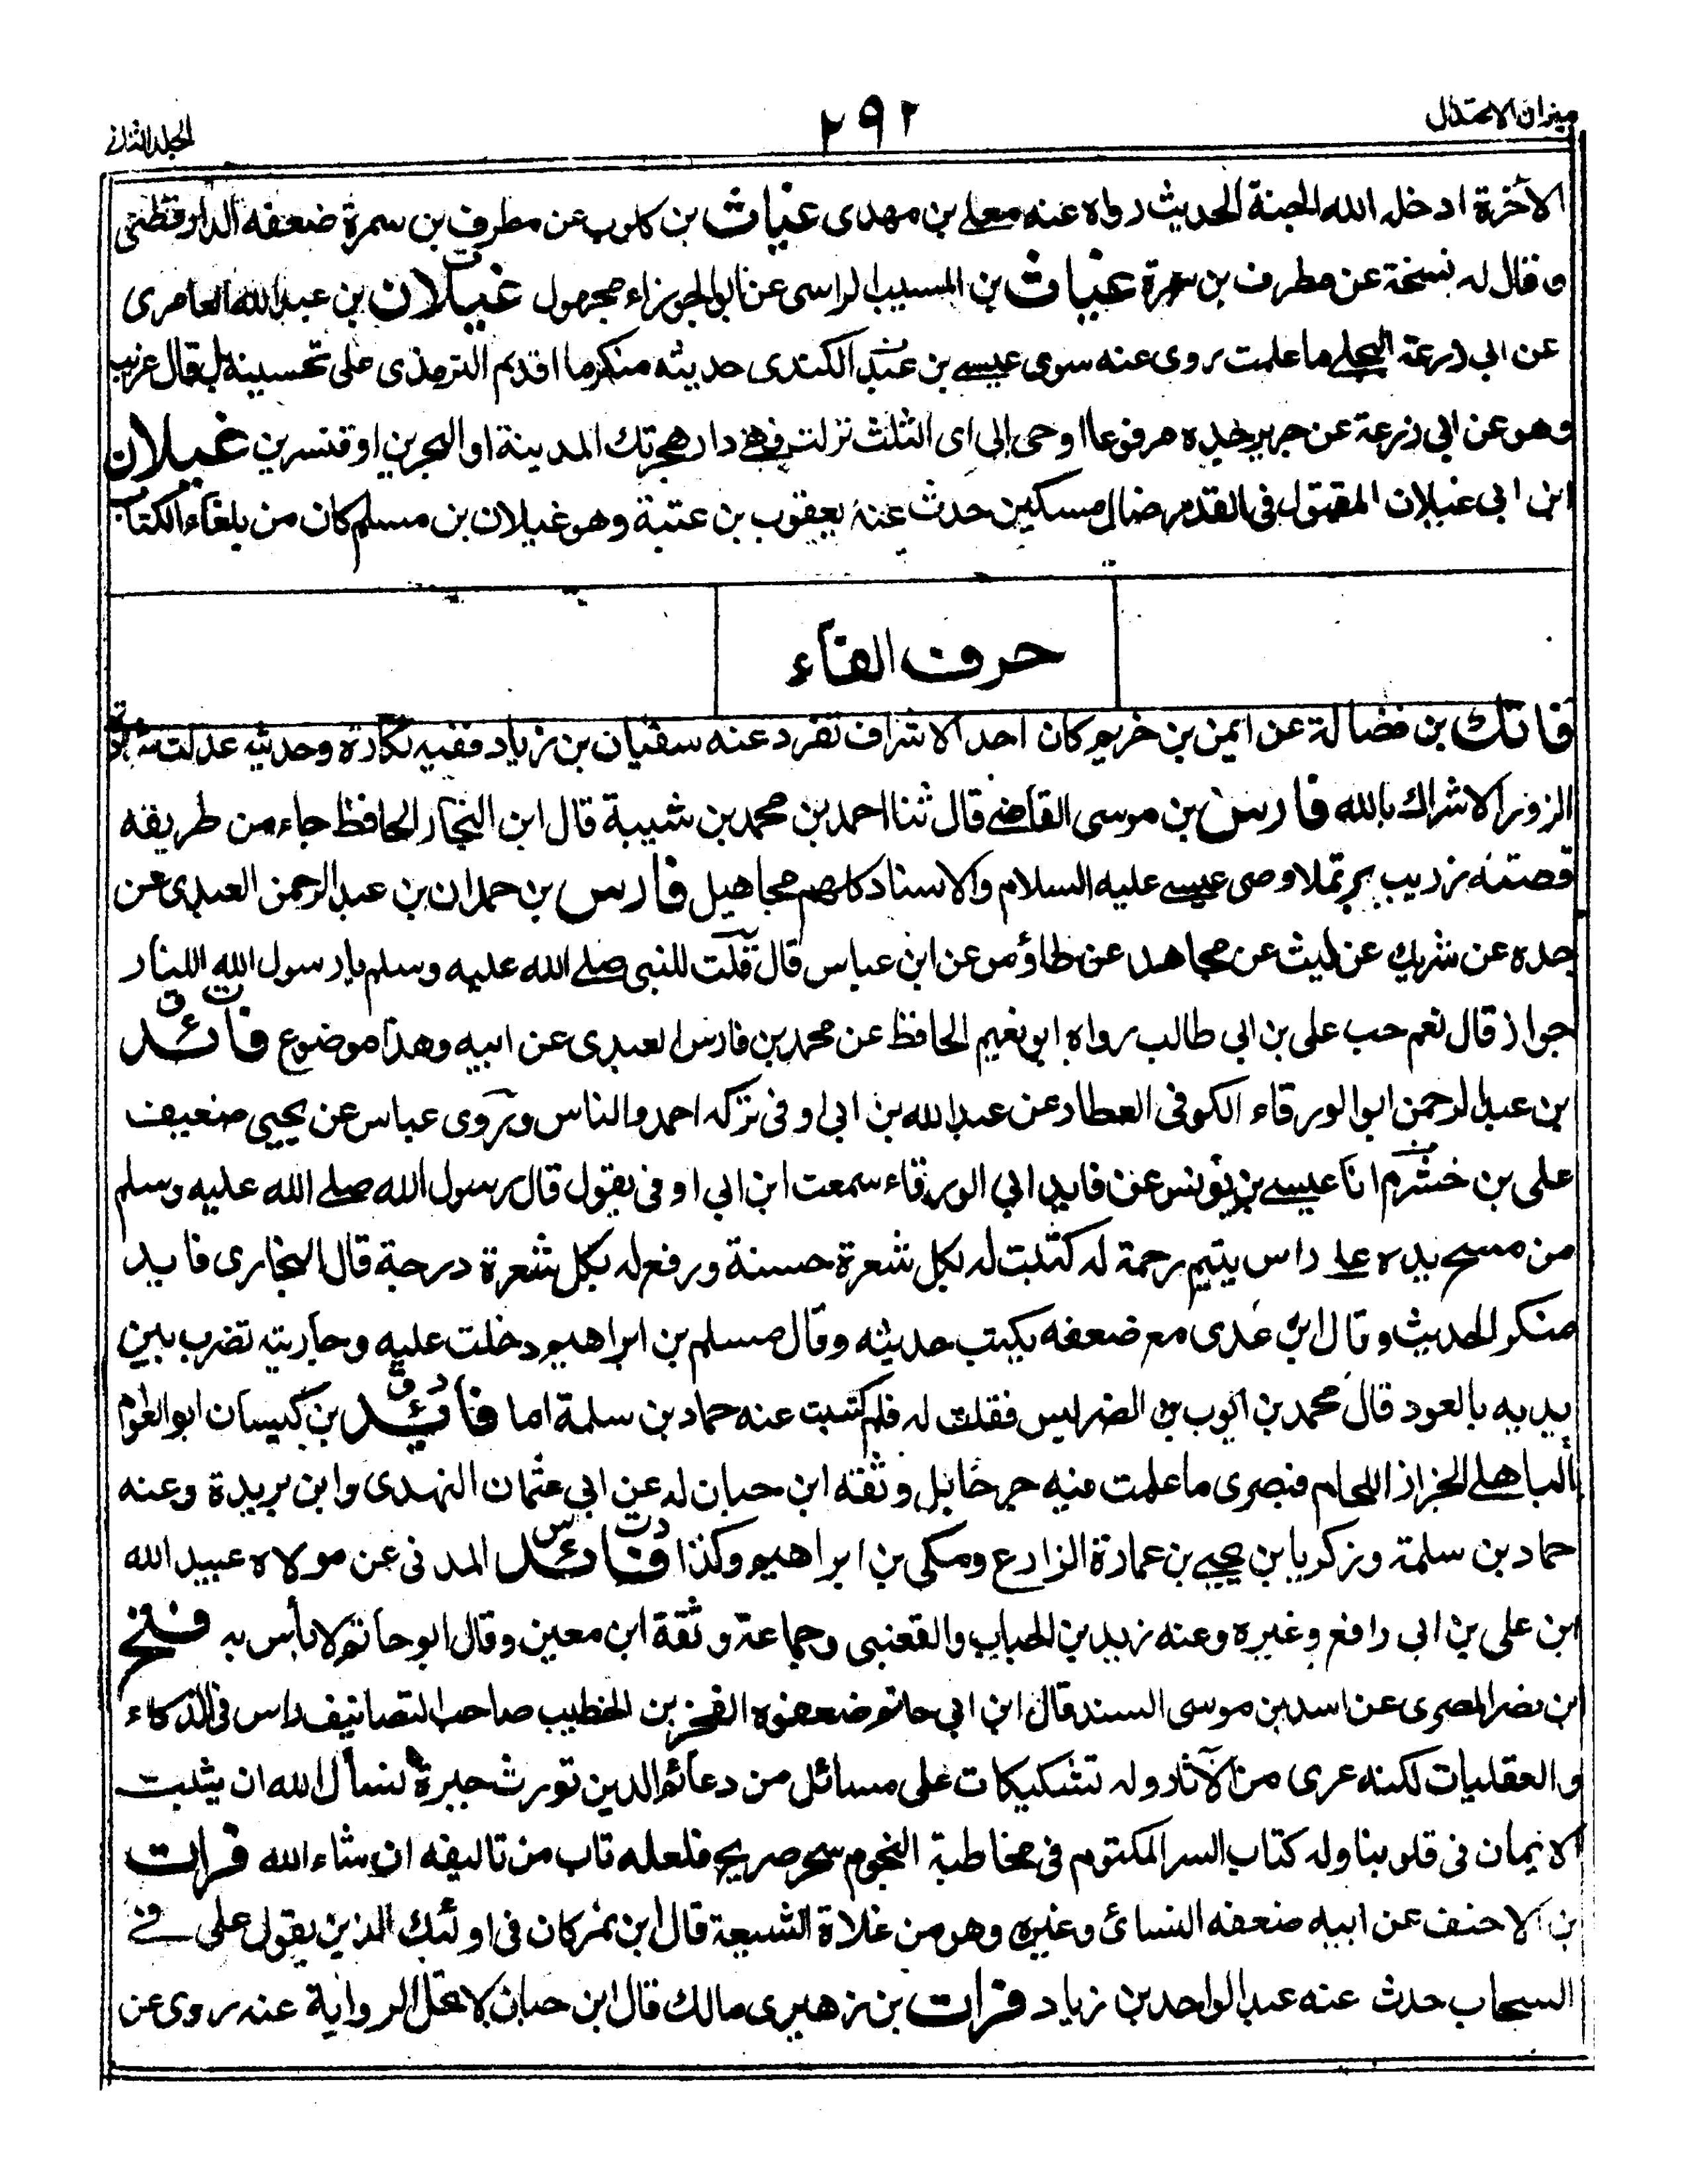 ميزان الاعتدال
٢٩٢
الجلد الثاني
الآخرة ادخله الله الجنة الحديث رواه عنه معلے بن مهدى غياث بن كلوب عن مطرف بن سمرة ضعفه الدارقطنى
وقال له نسخة عن مطرف بن سمرة غياث بن المسيب الراسى عن ابو الجوزاء مجهول غيلان بن عبد الله العامرى
عن ابى زرعة البجلے ما علمت روى عنه سوى عيسے بن عبيد الكندى حديثه منكر ما اقدم الترمذى على تحسينه بل قال غريب
وهو عن ابى زرعة عن جرير جده مرفوعا اوحى إلى اى الثلث نزلت فهى دار هجرتك المدينة او البحرين او قنسرين غيلان
ابن ابى غيلان المقتول فى القدر ضال مسكين حدث عنه يعقوب بن عتبة وهو غيلان بن مسلم كان من بلغاء الكتاب
حرف الفاء
فاتك بن فضالة عن ايمن بن خريم كان احد الاشراف تفرد عنه سفيان بن زياد ففيه نكارة وحديثه عدلت شهادة
الزور الاشراك بالله فارس بن موسى القاضے قال ثنا احمد بن محمد بن شيبة قال ابن النجار الحافظ جاء من طريقه
قصتنه زريب بن برتملا وصى عيسے عليه السلام والاسناد كلهم مجاهيل فارس بن حمدان بن عبد الرحمن العبدى عن
جده عن شريك عن ليث عن مجاهد عن طاؤس عن ابن عباس قال قلت للنبى صلے الله عليه وسلم يا رسول الله للنار
جواز قال نعم حب على بن ابى طالب رواه ابو نعيم الحافظ عن محمد بن فارس العبدى عن ابيه وهذا موضوع فائد
بن عبد الرحمن ابو الورقاء الكوفى العطار عن عبد الله بن ابى اوفى تركه احمد والناس وروى عباس عن يحيى ضعيف
على بن خشرم انا عيسے بن يونس عن فايد ابي الورقاء سمعت ابن ابى اوفى يقول قال رسول الله صلے الله عليه وسلم
من مسح يده علے راس يتيم رحمة له كتبت له بكل شعرة حسنة ورفع له بكل شعرة درجة قال البخارى فايد
منكر الحديث وقال ابن عدى مع ضعفه يكتب حديثه وقال مسلم بن ابراهيم دخلت عليه وجاريته تضرب بين
يديه بالعود قال محمد بن ايوب بن الضريس فقلت له فلم كتبت عنه حماد بن سلمة اما فائد بن كيسان ابو العوام
الباهلے الجزاز اللحام فبصرى ما علمت فيه جرحا بل وثقه ابن حبان له عن ابي عثمان النهدى وابن بريدة وعنه
حماد بن سلمة وزكريا بن يحيے بن عمارة الزارع ومكى بن ابراهيم وكذا فائد المدنى عن مولاه عبيد الله
ابن على بن ابى رافع وغيره وعنه زيد بن الحباب والقعنبى وجماعة وثقة ابن معين وقال ابو حاتم لا بأس به فتح
ابن نصر المصرى عن اسد بن موسى السند قال ابن ابي حاتم ضعفوه الفخر بن الخطيب صاحب التصانيف راس فى الذكاء
والعقليات لكنه عرى من الآثار وله تشكيكات على مسائل من دعائم الدين تورث حيرة نسأل الله ان يثبت
الايمان فى قلوبنا وله كتاب السر المكتوم فى مخاطبة النجوم سحر صريح فلعله تاب من تاليفه ان شاء الله فرات
بن الاحنف عن ابيه ضعفه النسائ وغيره وهو من غلاة الشيعة قال ابن نمر كان فى اولئك الذين يقول على فے
السحاب حدث عنه عبد الواحد بن زياد فرات بن زهير ى مالك قال ابن حبان لا تحل الرواية عنه روى عن